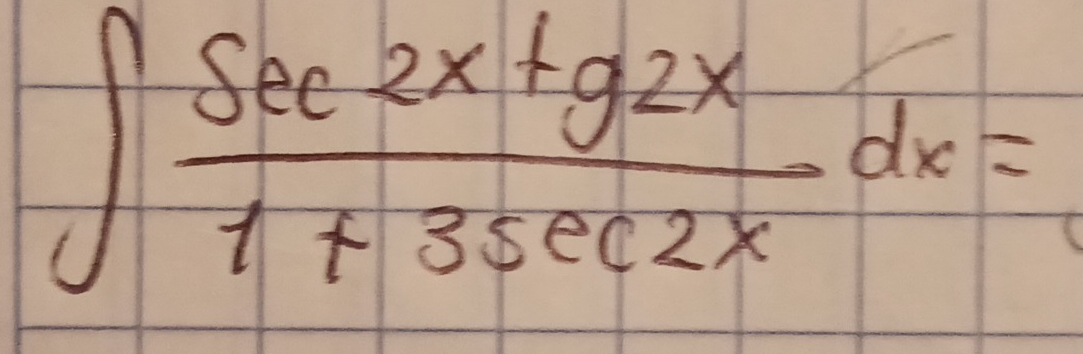 ∫ sec 2x tg 2x / 1 + 3 sec 2x dx =